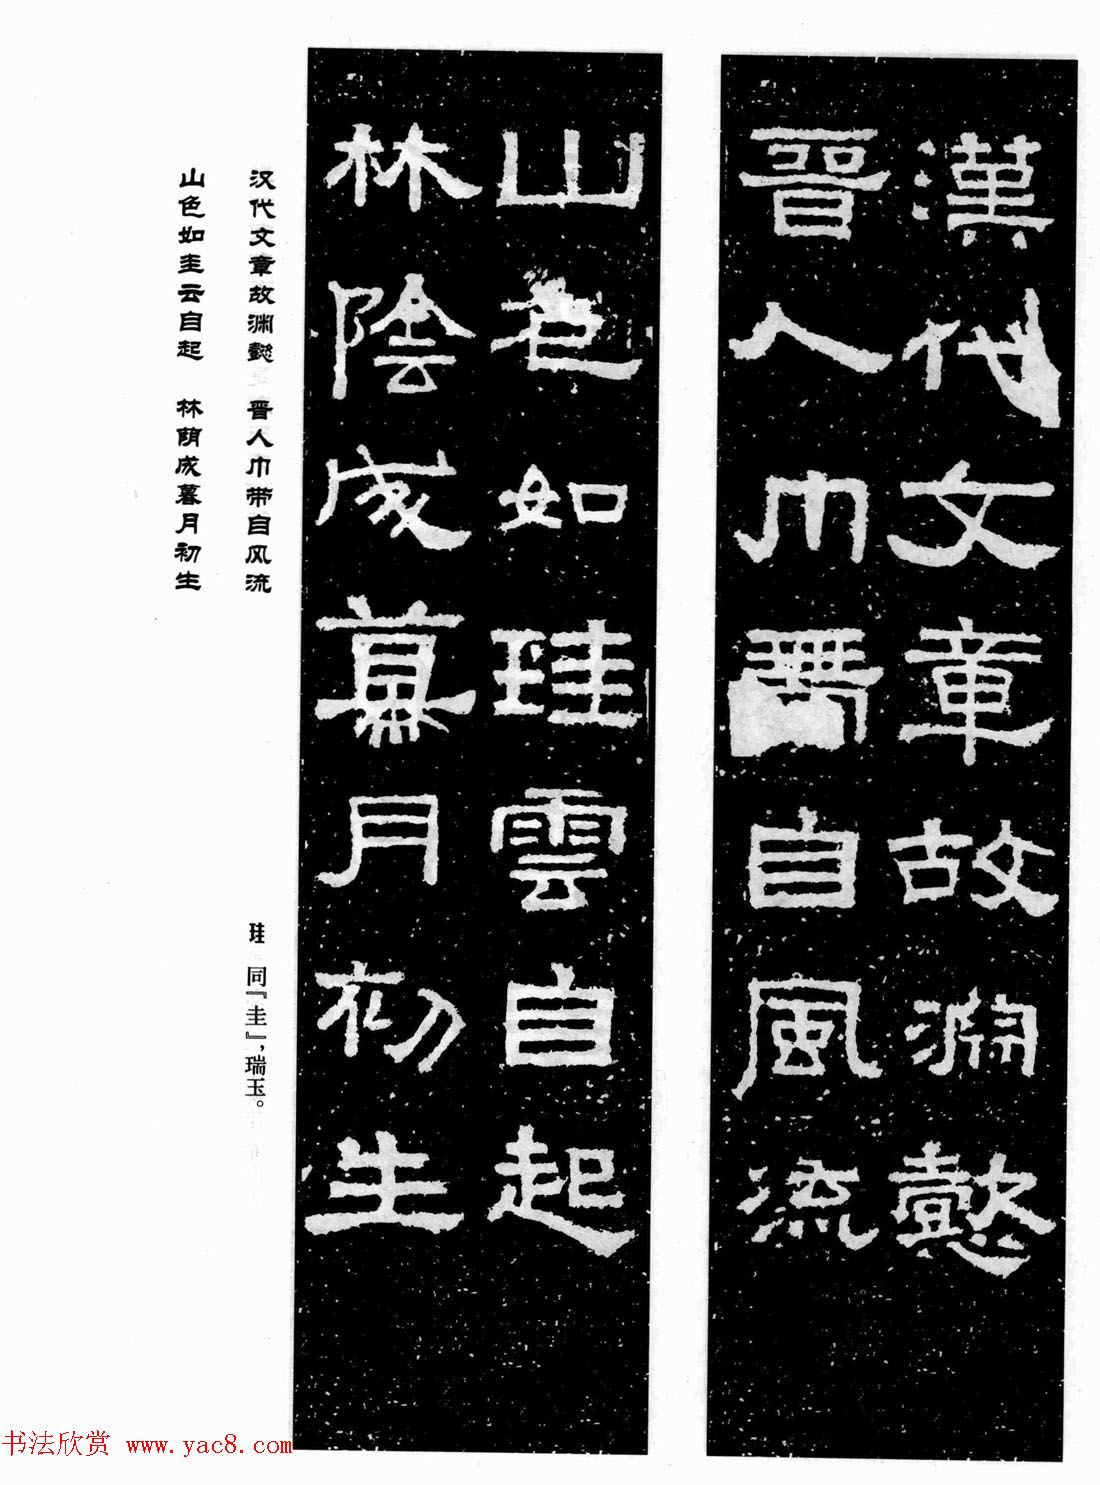 漢代文章故渊懿
晋人巾帶自風流
山色如珪雲自起
林陰成莫月初生
汉代文章故渊懿 晋人巾带自风流
山色如圭云自起 林荫成暮月初生
珪 同『圭』，瑞玉。
书法欣赏 www.yac8.com